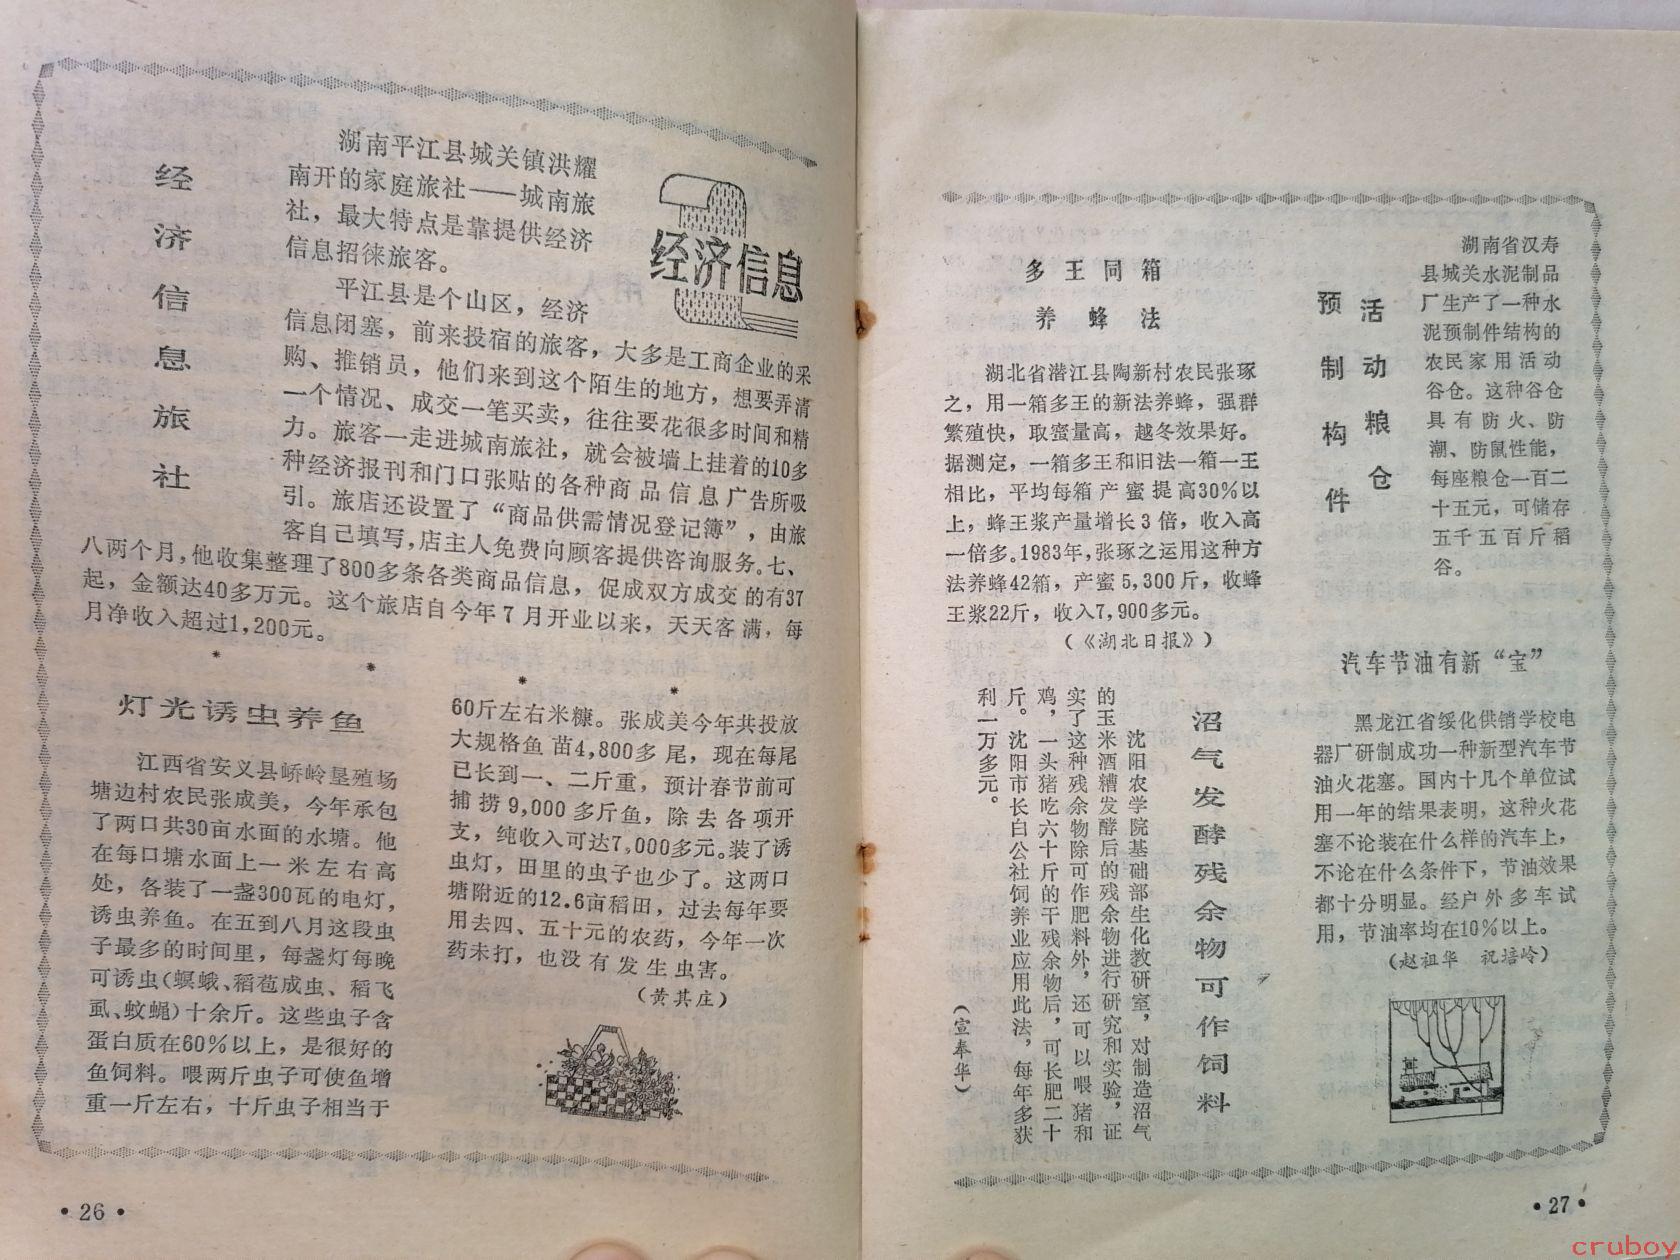 经济信息旅社
经济信息
湖南平江县城关镇洪耀
南开的家庭旅社——城南旅
社，最大特点是靠提供经济
信息招徕旅客。
平江县是个山区，经济
信息闭塞，前来投宿的旅客，大多是工商企业的采
购、推销员，他们来到这个陌生的地方，想要弄清
一个情况、成交一笔买卖，往往要花很多时间和精
力。旅客一走进城南旅社，就会被墙上挂着的10多
种经济报刊和门口张贴的各种商品信息广告所吸
引。旅店还设置了“商品供需情况登记簿”，由旅
客自己填写，店主人免费向顾客提供咨询服务。七、
八两个月，他收集整理了800多条各类商品信息，促成双方成交的有37
起，金额达40多万元。这个旅店自今年7月开业以来，天天客满，每
月净收入超过1,200元。
* * * *
灯光诱虫养鱼
江西省安义县峤岭垦殖场
塘边村农民张成美，今年承包
了两口共30亩水面的水塘。他
在每口塘水面上一米左右高
处，各装了一盏300瓦的电灯，
诱虫养鱼。在五到八月这段虫
子最多的时间里，每盏灯每晚
可诱虫(螟蛾、稻苞成虫、稻飞
虱、蚊蝇)十余斤。这些虫子含
蛋白质在60%以上，是很好的
鱼饲料。喂两斤虫子可使鱼增
重一斤左右，十斤虫子相当于
60斤左右米糠。张成美今年共投放
大规格鱼苗4,800多尾，现在每尾
已长到一、二斤重，预计春节前可
捕捞9,000多斤鱼，除去各项开
支，纯收入可达7,000多元。装了诱
虫灯，田里的虫子也少了。这两口
塘附近的12.6亩稻田，过去每年要
用去四、五十元的农药，今年一次
药未打，也没有发生虫害。
(黄其庄)
·26·
多王同箱
养蜂法
湖北省潜江县陶新村农民张琢
之，用一箱多王的新法养蜂，强群
繁殖快，取蜜量高，越冬效果好。
据测定，一箱多王和旧法一箱一王
相比，平均每箱产蜜提高30%以
上，蜂王浆产量增长3倍，收入高
一倍多。1983年，张琢之运用这种方
法养蜂42箱，产蜜5,300斤，收蜂
王浆22斤，收入7,900多元。
(《湖北日报》)
活动粮仓
预制构件
湖南省汉寿
县城关水泥制品
厂生产了一种水
泥预制件结构的
农民家用活动
谷仓。这种谷仓
具有防火、防
潮、防鼠性能，
每座粮仓一百二
十五元，可储存
五千五百斤稻
谷。
沼气发酵残余物可作饲料
沈阳农学院基础部生化教研室，对制造沼气
的玉米酒糟发酵后的残余物进行研究和实验，证
实了这种残余物除可作肥料外，还可以喂猪和
鸡，一头猪吃六十斤的干残余物后，可长肥二十
斤。沈阳市长白公社饲养业应用此法，每年多获
利一万多元。
(宣奉华)
汽车节油有新“宝”
黑龙江省绥化供销学校电
器厂研制成功一种新型汽车节
油火花塞。国内十几个单位试
用一年的结果表明，这种火花
塞不论装在什么样的汽车上，
不论在什么条件下，节油效果
都十分明显。经户外多车试
用，节油率均在10%以上。
(赵祖华 祝培岭)
·27·
cruboy